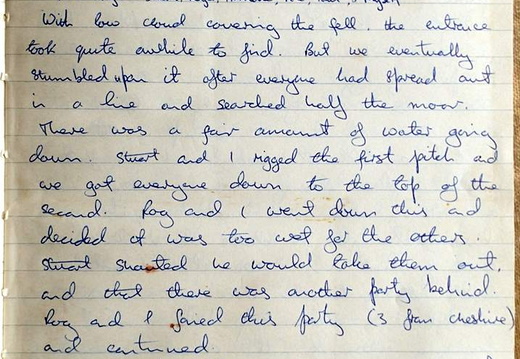 With low cloud covering the fell, the entrance
took quite awhile to find. But we eventually
stumbled upon it after everyone had spread out
in a line and searched half the moor.
There was a fair amount of water going
down. Stuart and I rigged the first pitch and
we got everyone down to the top of the
second. Rog and I went down this and
decided it was too wet for the others.
Stuart shouted he would take them out,
and that there was another party behind.
Rog and I joined this party (3 from Cheshire)
and continued.